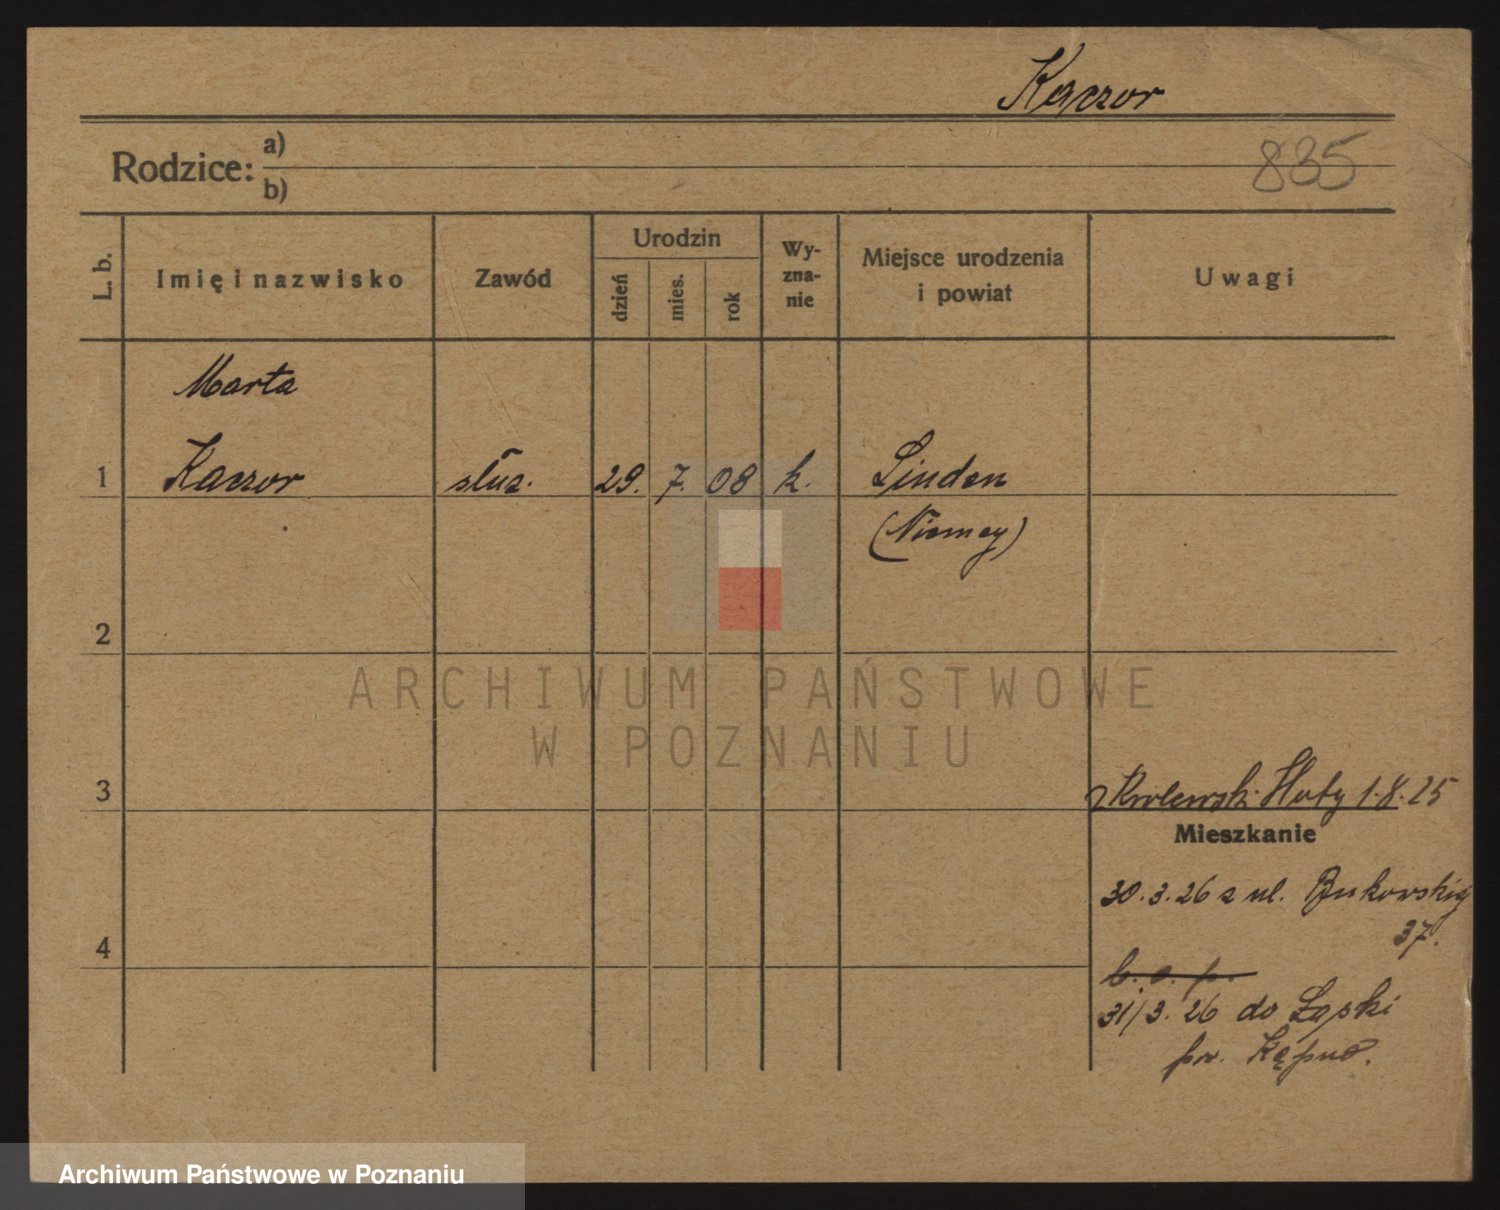 Kaczor
Rodzice: a)
b)
835
L. b.
Imię i nazwisko
Zawód
Urodzin
dzień
mies.
rok
Wy-
zna-
nie
Miejsce urodzenia
i powiat
Uwagi
Marta
1 Kaczor służ. 29. 7. 08 k. Linden
(Niemcy)
2
ARCHIWUM PAŃSTWOWE
W POZNANIU
3
z Krolewski Huty 1.8.25
Mieszkanie
30.3.26 z ul. Bukowskiej
37.
4
b. o. p.
31/3.26 do Łąski
pw. Kępno.
Archiwum Państwowe w Poznaniu